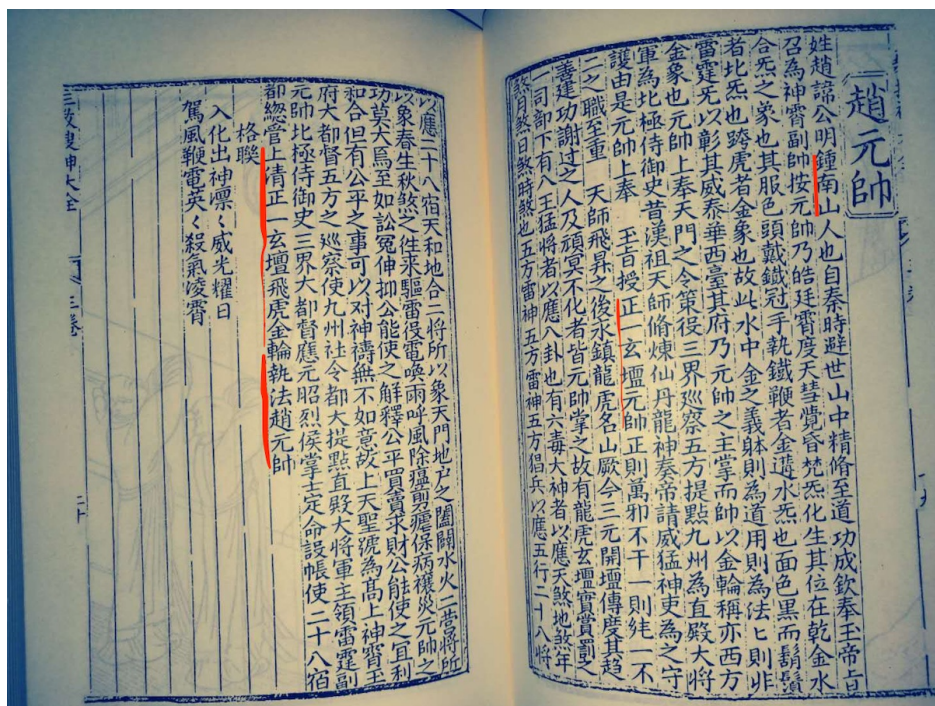 趙元帥
姓趙諱公明鍾南山人也自秦時避世山中精脩至道功成欽奉玉帝旨
召為神霄副帥按元帥乃皓廷霄度天彗覺昏梵炁化生其位在乾金水
合炁之象也其服色頭戴鐵冠手執鐵鞭者金遘水炁也面色黑而鬍鬚
者北炁也跨虎者金象也故此水中金之義躰則為道用則為法匕則非
雷霆旡以彰其威泰華西臺其府乃元帥之主掌而帥以金輪稱亦西方
金象也元帥上奉天門之令策役三界廵察五方提點九州為直殿大將
軍為北極侍御史昔漢祖天師脩煉仙丹龍神奏帝請威猛神吏為之守
護由是元帥上奉 玉旨授正一玄壇元帥正則萬邪不干一則純一不
二之職至重 天師飛昇之後永鎮龍虎名山厥今三元開壇傳度其趨
善建功謝过之人及頑冥不化者皆元帥掌之故有龍虎玄壇賞罰之
一司部下有八王猛將者以應八卦也有六毒大神者以應天煞地煞年
煞月煞日煞時煞也五方雷神五方猖兵以應五行二十八將
以應二十八宿天和地合二將所以象天門地户之闔闢水火二营將所
以象春生秋煞之徃來驅雷役電喚雨呼風除瘟剪瘧保病禳災元帥之
功莫大焉至如訟冤伸抑公能使之解釋公平買賣求財公能使之宜利
和合但有公平之事可以对神禱無不如意故上天聖號為高上神霄玉
府大都督五方之廵察使九州社令都大提點直殿大將軍主領雷霆副
元帥北極侍御史三界大都督應元昭烈侯掌士定命設帳使二十八宿
都總管上清正一玄壇飛虎金輪執法趙元帥
格聯
入化出神凛く威光耀日
駕風鞭電英く殺氣凌霄
三教搜神大全
三卷
二十